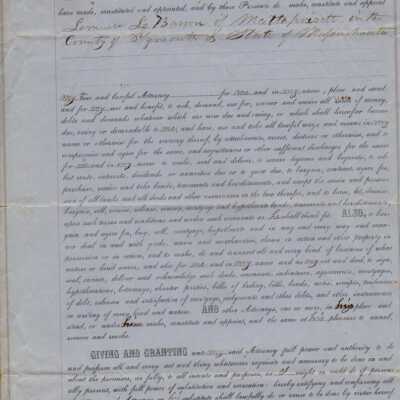 have made, constituted and appointed, and by these Presents do make, constitute and appoint
Le Baron of Mattapoisett in the
County of Plymouth & State of Massachusetts
My True and lawful Attorney for me and in my name, place and stead,
and for my use and benefit, to ask, demand, sue for, recover and receive all sums of money,
debts and demands whatever which are now due and owing, or which shall hereafter become
due, owing or demandable to me, and have, use and take all lawful ways and means in my
name or otherwise for the recovery thereof, by attachments, arrest, distress or otherwise, and to
compromise and agree for the same, and acquittances or other sufficient discharges for the same
for me and in my name to make, seal and deliver; to
interests, dividends or annuities due or to grow due, to bargain, contract, agree for,
purchase, receive and take lands, tenements and hereditaments, and accept the seizin and possession
of all lands and all deeds and other assurances in the law therefor, and to lease, let, demise,
bargain, sell, remise, release, convey, mortgage and hypothecate lands, tenements and hereditaments,
upon such terms and conditions and under such covenants as he shall think fit. ALSO, to bargain
and agree for, buy, sell, mortgage, hypothecate and in any and every way and manner
deal in and with goods, wares and merchandise, choses in action and other property in
possession or in action, and to make, do and transact all and every kind of business of what
nature or kind soever, and also for me and in my name and as my act and deed, to sign,
seal, execute, deliver and acknowledge such deeds, covenants, indentures, agreements, mortgages,
hypothecations, bottomries, charter parties, bills of lading, bills, bonds, notes, receipts, evidences
of debt, releases and satisfaction of mortgage, judgments and other debts, and other instruments
in writing of every kind and nature. AND other Attorneys, one or more, in his place and
stead, or under him make, constitute and appoint, and the same at his pleasure to annul,
remove and revoke.
GIVING AND GRANTING unto my said Attorney full power and authority to do
and perform all and every act and thing whatsoever requisite and necessary to be done in and
about the premises, as fully, to all intents and purposes, as I might or could do if personally
present, with full power of substitution and revocation: hereby ratifying and confirming all
substitute shall lawfully do or cause to be done by virtue hereof.